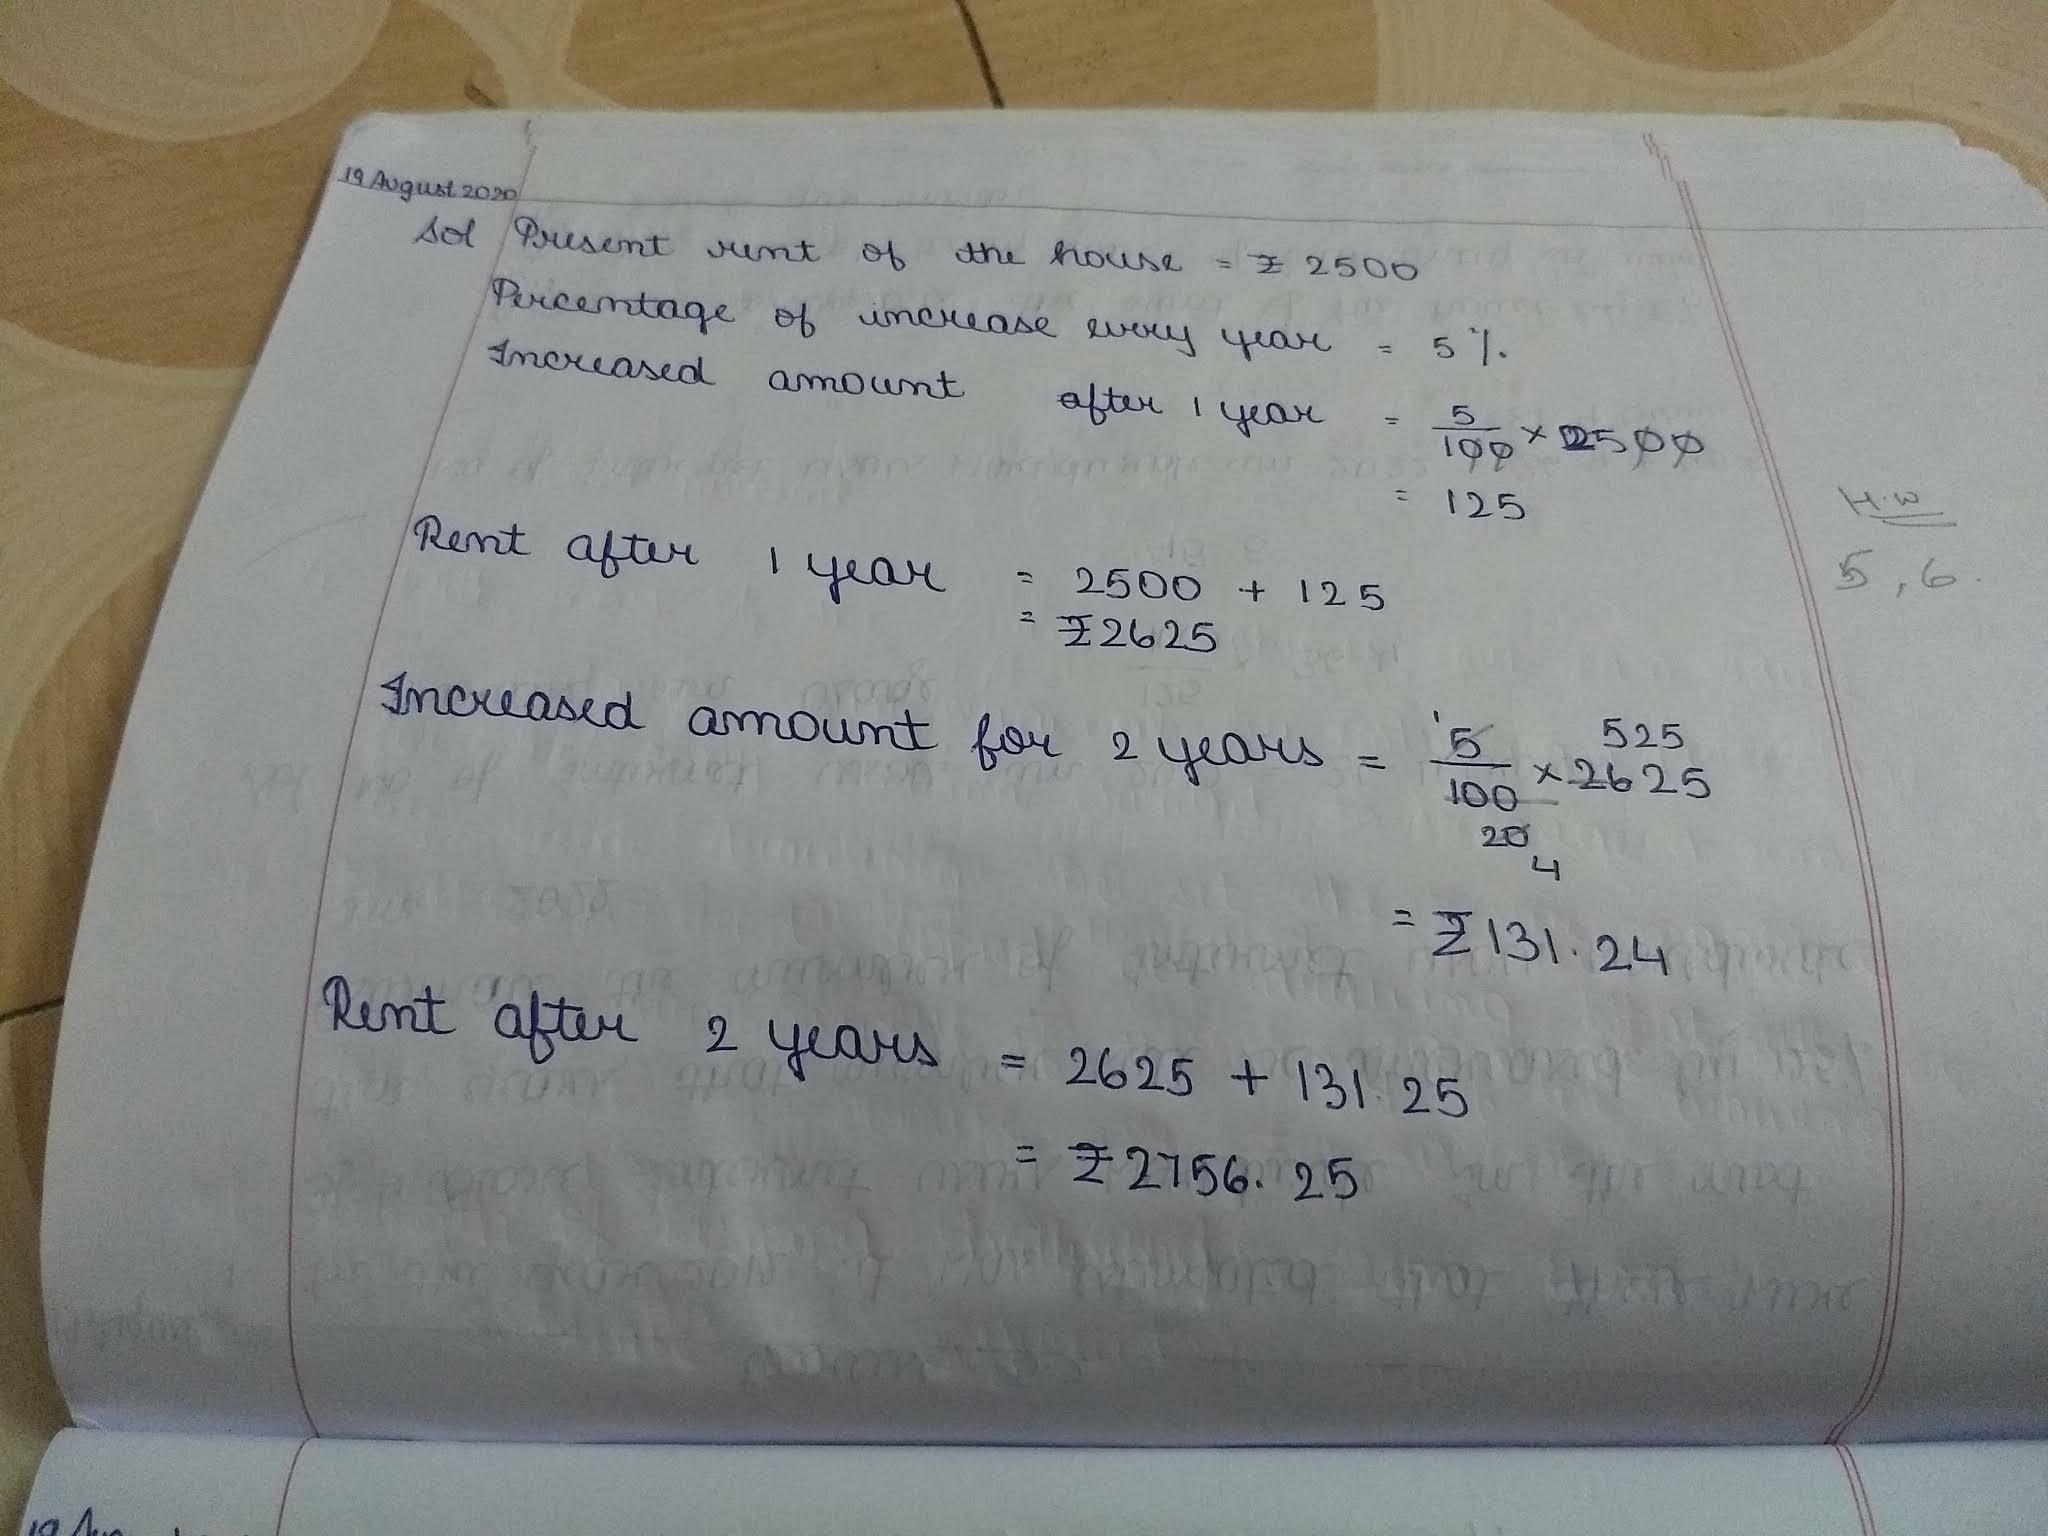 19 August 2020
Sol Present rent of the house = ₹ 2500
Percentage of increase every year = 5%.
Increased amount after 1 year = 5/100 × 2500
= 125
H.W
5, 6.
Rent after 1 year = 2500 + 125
= ₹2625
Increased amount for 2 years = 5/100 × 2625
1 525
20
4
= ₹131.24
Rent after 2 years = 2625 + 131.25
= ₹2756.25